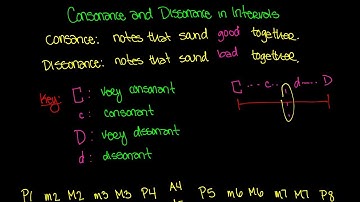 Consonance and Dissonance in Intervals
Consance: notes that sound good together.
Dissonance: notes that sound bad together.
Key: C: very consonant
c: consonant
D: very dissonant
d: dissonant
C ... c ... d ... D
P1 m2 M2 m3 M3 P4 A4 P5 m6 M6 m7 M7 P8